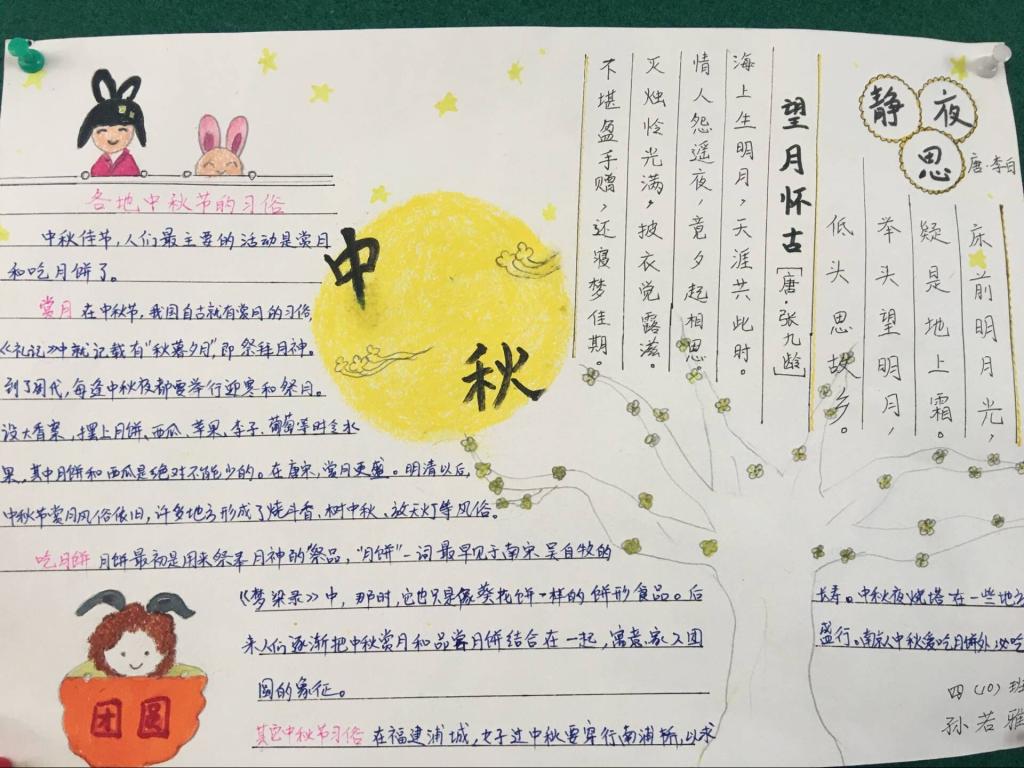 各地中秋节的习俗
中秋佳节，人们最主要的活动是赏月
和吃月饼了。
赏月 在中秋节，我国自古就有赏月的习俗，
《礼记》中就记载有“秋暮夕月”即祭拜月神。
到了周代，每逢中秋夜都要举行迎寒和祭月。
设大香案，摆上月饼、西瓜、苹果、李子、葡萄等时令水
果，其中月饼和西瓜是绝对不能少的。在唐宋，赏月更盛。明清以后，
中秋节赏月风俗依旧，许多地方形成了烧斗香、树中秋、放天灯等风俗。
吃月饼 月饼最初是用来祭奉月神的祭品，“月饼”一词最早见于南宋吴自牧的
《梦梁录》中，那时，它也只是像菱花饼一样的饼形食品。后
来人们逐渐把中秋赏月和品尝月饼结合在一起，寓意家人团
圆的象征。
其它中秋节习俗 在福建浦城，女子过中秋要穿行南浦桥，以求
长寿。中秋夜烧塔在一些地方
盛行。南京人中秋爱吃月饼外，必吃
中
秋
团圆
望月怀古[唐·张九龄]
海上生明月，天涯共此时。
情人怨遥夜，竟夕起相思。
灭烛怜光满，披衣觉露滋。
不堪盈手赠，还寝梦佳期。
静夜
思
唐·李白
床前明月光，
疑是地上霜。
举头望明月，
低头思故乡。
四（10）班
孙若雅